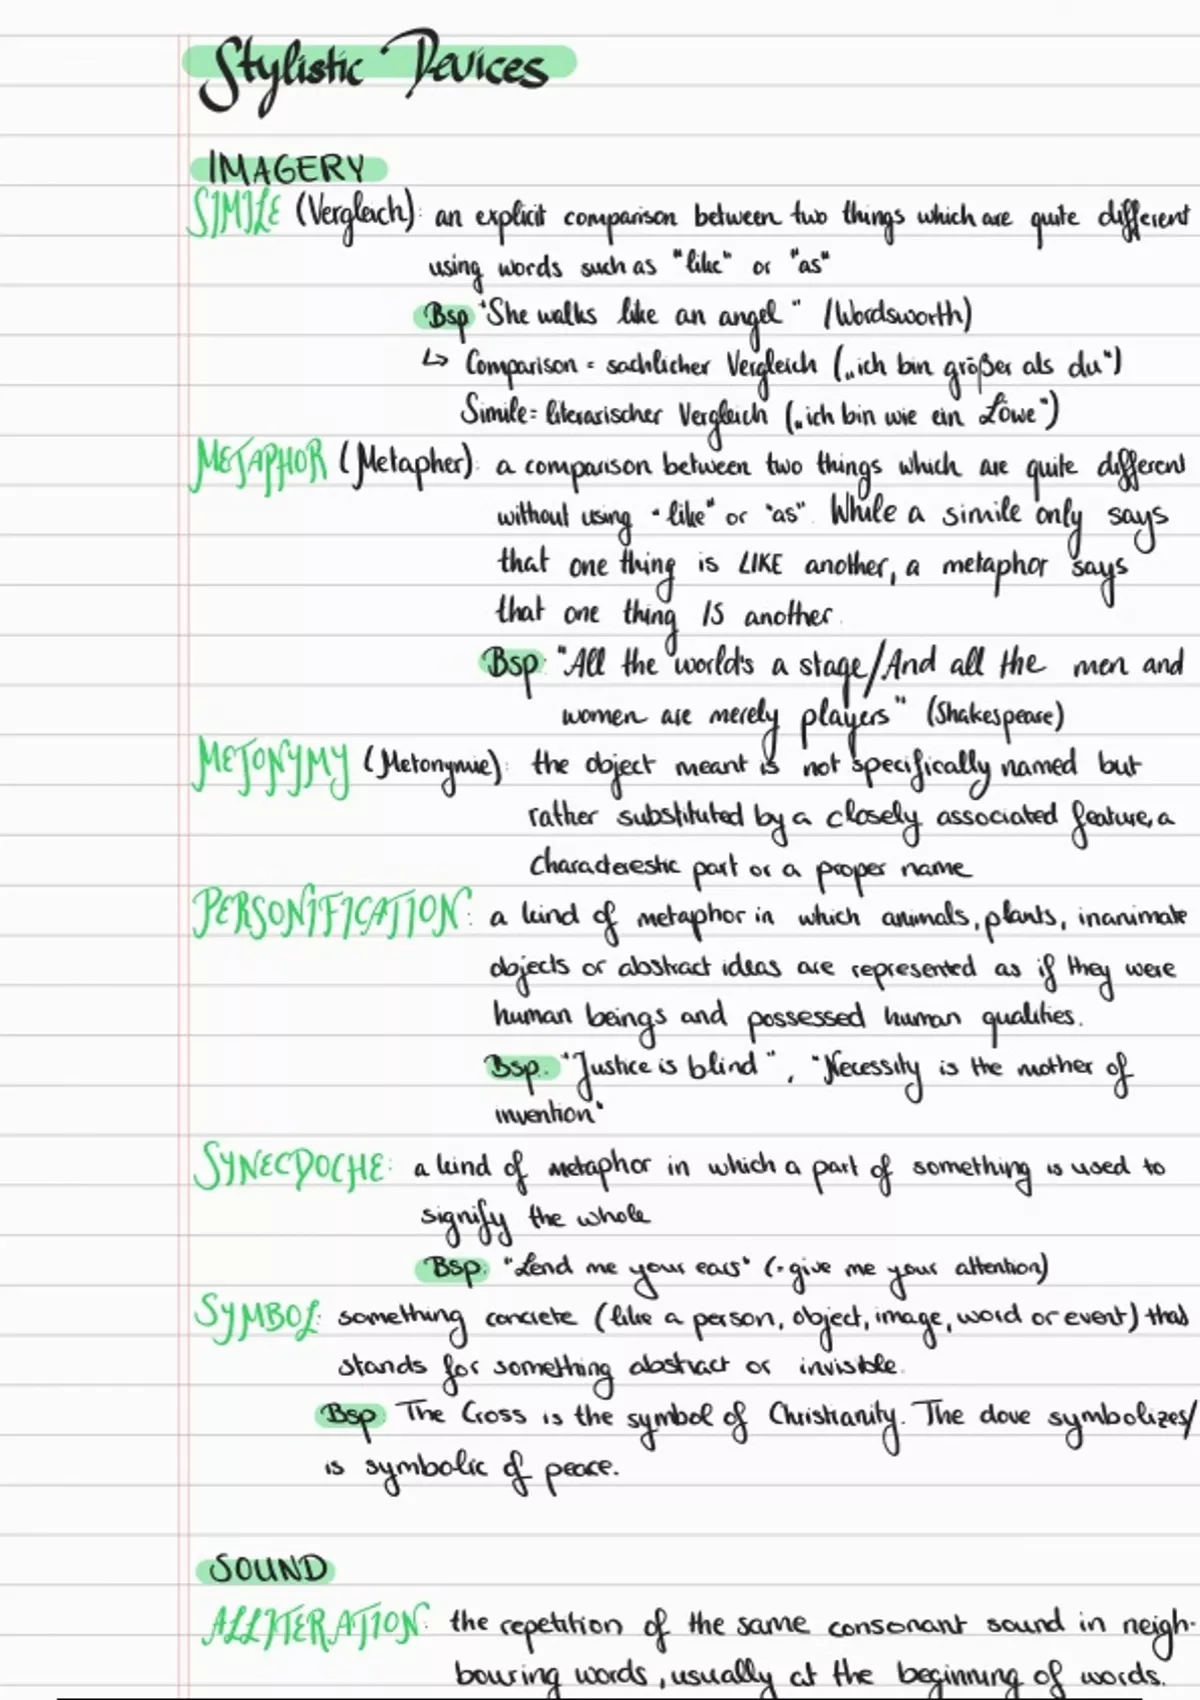 Stylistic Devices
IMAGERY
SIMILE (Vergleich): an explicit comparison between two things which are quite different
using words such as "like" or "as"
Bsp "She walks like an angel" (Wordsworth)
↳ Comparison = sachlicher Vergleich („ich bin größer als du")
Simile = literarischer Vergleich („ich bin wie ein Löwe")
METAPHOR (Metapher): a comparison between two things which are quite different
without using "like" or "as". While a simile only says
that one thing is LIKE another, a metaphor says
that one thing IS another.
Bsp: "All the world's a stage/And all the men and
women are merely players" (Shakespeare)
METONYMY (Metonymie): the object meant is not specifically named but
rather substituted by a closely associated feature, a
characterestic part or a proper name
PERSONIFICATION: a kind of metaphor in which animals, plants, inanimate
objects or abstract ideas are represented as if they were
human beings and possessed human qualities.
Bsp. "Justice is blind", "Necessity is the mother of
invention"
SYNECDOCHE: a kind of metaphor in which a part of something is used to
signify the whole
Bsp. "Lend me your ears" (= give me your attention)
SYMBOL: something concrete (like a person, object, image, word or event) that
stands for something abstract or invisible.
Bsp: The Cross is the symbol of Christianity. The dove symbolizes/
is symbolic of peace.
SOUND
ALLITERATION: the repetition of the same consonant sound in neigh-
bouring words, usually at the beginning of words.